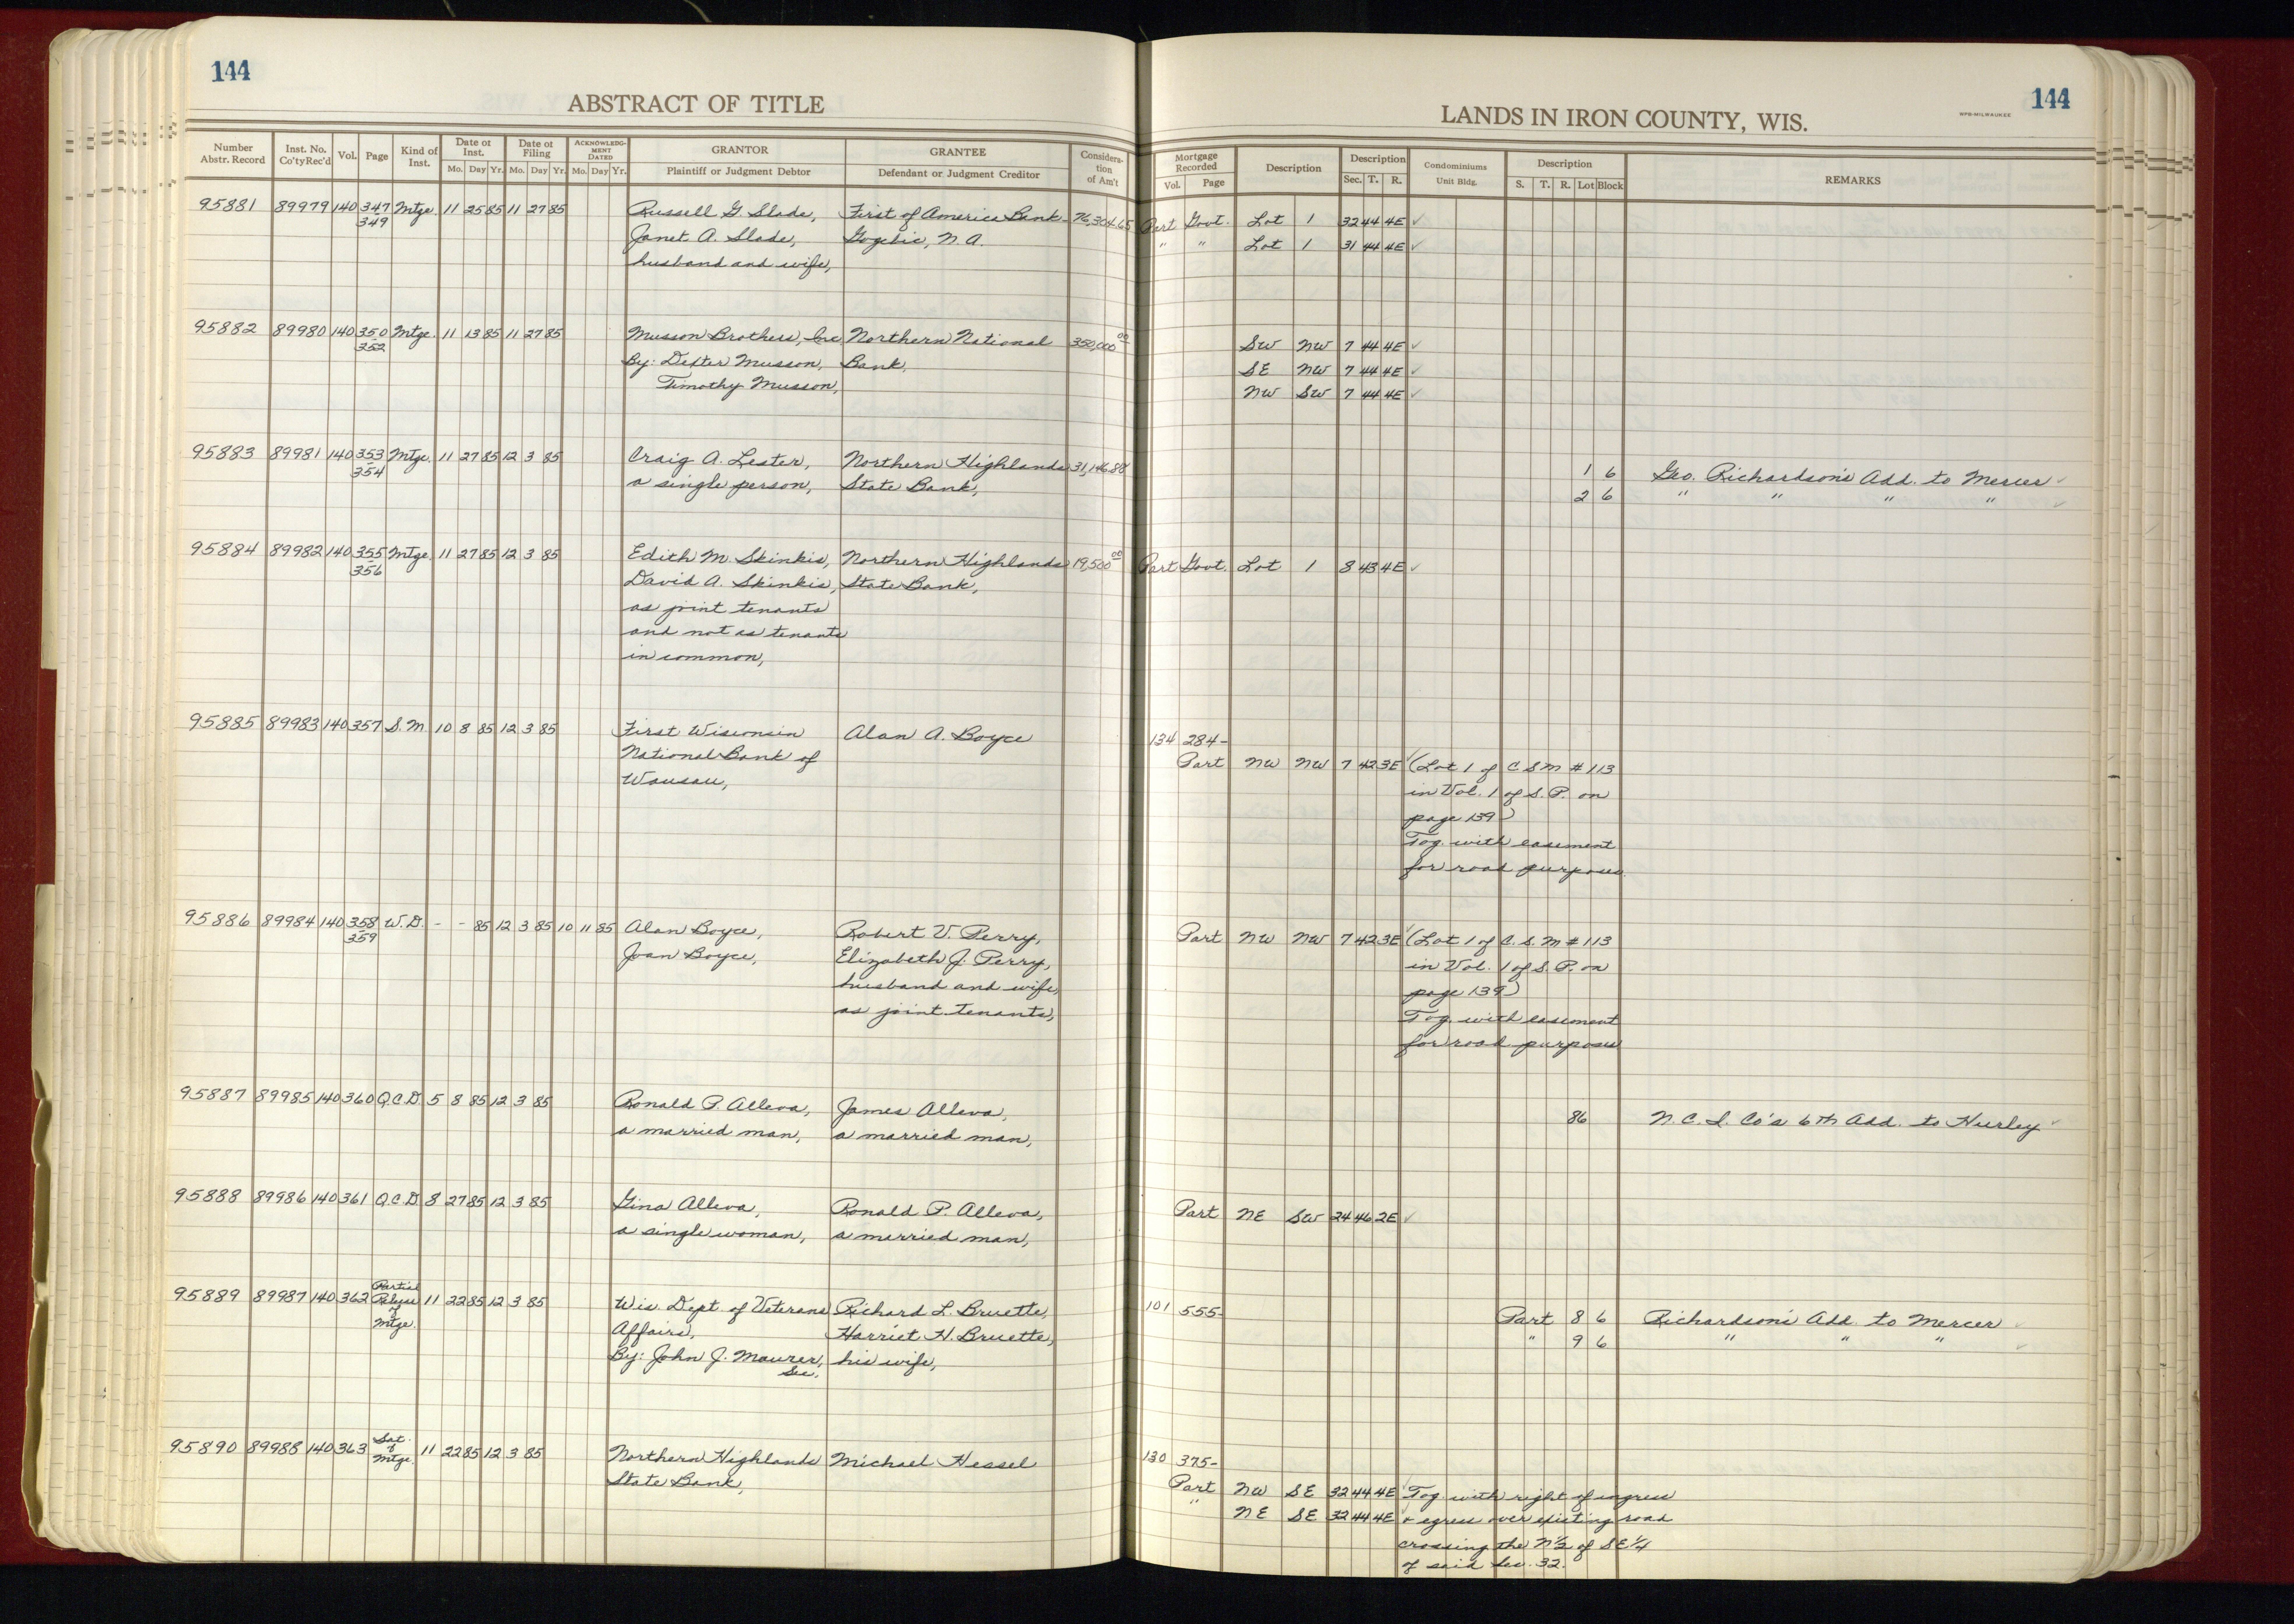 144
ABSTRACT OF TITLE
Number Abstr. Record Inst. No. Co'ty Rec'd Vol. Page Kind of Inst. Date of Inst. Mo. Day Yr. Date of Filing Mo. Day Yr. ACKNOWLEDGMENT DATED Mo. Day Yr. GRANTOR Plaintiff or Judgment Debtor GRANTEE Defendant or Judgment Creditor Consideration of Am't
95881 89979 140 347 Mtge. 11 25 85 11 27 85 Russell G. Slade, First of America Bank- 76,304.65
349 Janet A. Slade, Gogebic, N.A.
husband and wife,
95882 89980 140 350 Mtge. 11 13 85 11 27 85 Musson Brothers, Inc. Northern National 350,000 00
352 By: Dexter Musson, Bank,
Timothy Musson,
95883 89981 140 353 Mtge. 11 27 85 12 3 85 Craig A. Lester, Northern Highlands 31,146.88
354 a single person, State Bank,
95884 89982 140 355 Mtge. 11 27 85 12 3 85 Edith M. Skinkis, Northern Highlands 19,500 00
356 David A. Skinkis, State Bank,
as joint tenants
and not as tenants
in common,
95885 89983 140 357 S.M. 10 8 85 12 3 85 First Wisconsin Alan A. Boyce
National Bank of
Wausau,
95886 89984 140 358 W.D. - - 85 12 3 85 10 11 85 Alan Boyce, Robert V. Perry,
359 Joan Boyce, Elizabeth J. Perry,
husband and wife,
as joint tenants,
95887 89985 140 360 Q.C.D. 5 8 85 12 3 85 Ronald P. Alleva, James Alleva,
a married man, a married man,
95888 89986 140 361 Q.C.D. 8 27 85 12 3 85 Gina Alleva, Ronald P. Alleva,
a single woman, a married man,
95889 89987 140 362 Partial Release of Mtge. 11 22 85 12 3 85 Wis. Dept. of Veterans Richard L. Bruette,
Affairs, Harriet H. Bruette,
By: John J. Maurer, his wife,
Sec.
95890 89988 140 363 Sat. of Mtge. 11 22 85 12 3 85 Northern Highlands Michael Hessel
State Bank,
144
LANDS IN IRON COUNTY, WIS.
WPB-MILWAUKEE
Mortgage Recorded Vol. Page Description Description Sec. T. R. Condominiums Unit Bldg. Description S. T. R. Lot Block REMARKS
Part Govt. Lot 1 32 44 4E ✓
" " Lot 1 31 44 4E ✓
SW NW 7 44 4E ✓
SE NW 7 44 4E ✓
NW SW 7 44 4E ✓
1 6 Geo. Richardson's Add. to Mercer ✓
2 6 " " " " ✓
Part Govt. Lot 1 8 43 4E ✓
134 284-
Part NW NW 7 42 3E ✓ (Lot 1 of C S M # 113
in Vol. 1 of S. P. on
page 139)
Tog. with easement
for road purposes.
Part NW NW 7 42 3E ✓ (Lot 1 of C. S. M # 113
in Vol. 1 of S. P. on
page 139)
Tog. with easement
for road purposes
86 N. C. I. Co's 6th Add. to Hurley ✓
Part NE SW 24 46 2E ✓
101 555- Part 8 6 Richardson's Add. to Mercer ✓
" 9 6 " " " ✓
130 375-
Part NW SE 32 44 4E ✓ Tog. with right of ingress
" NE SE 32 44 4E ✓ & egress over existing road
crossing the N½ of SE¼
of said Sec. 32.